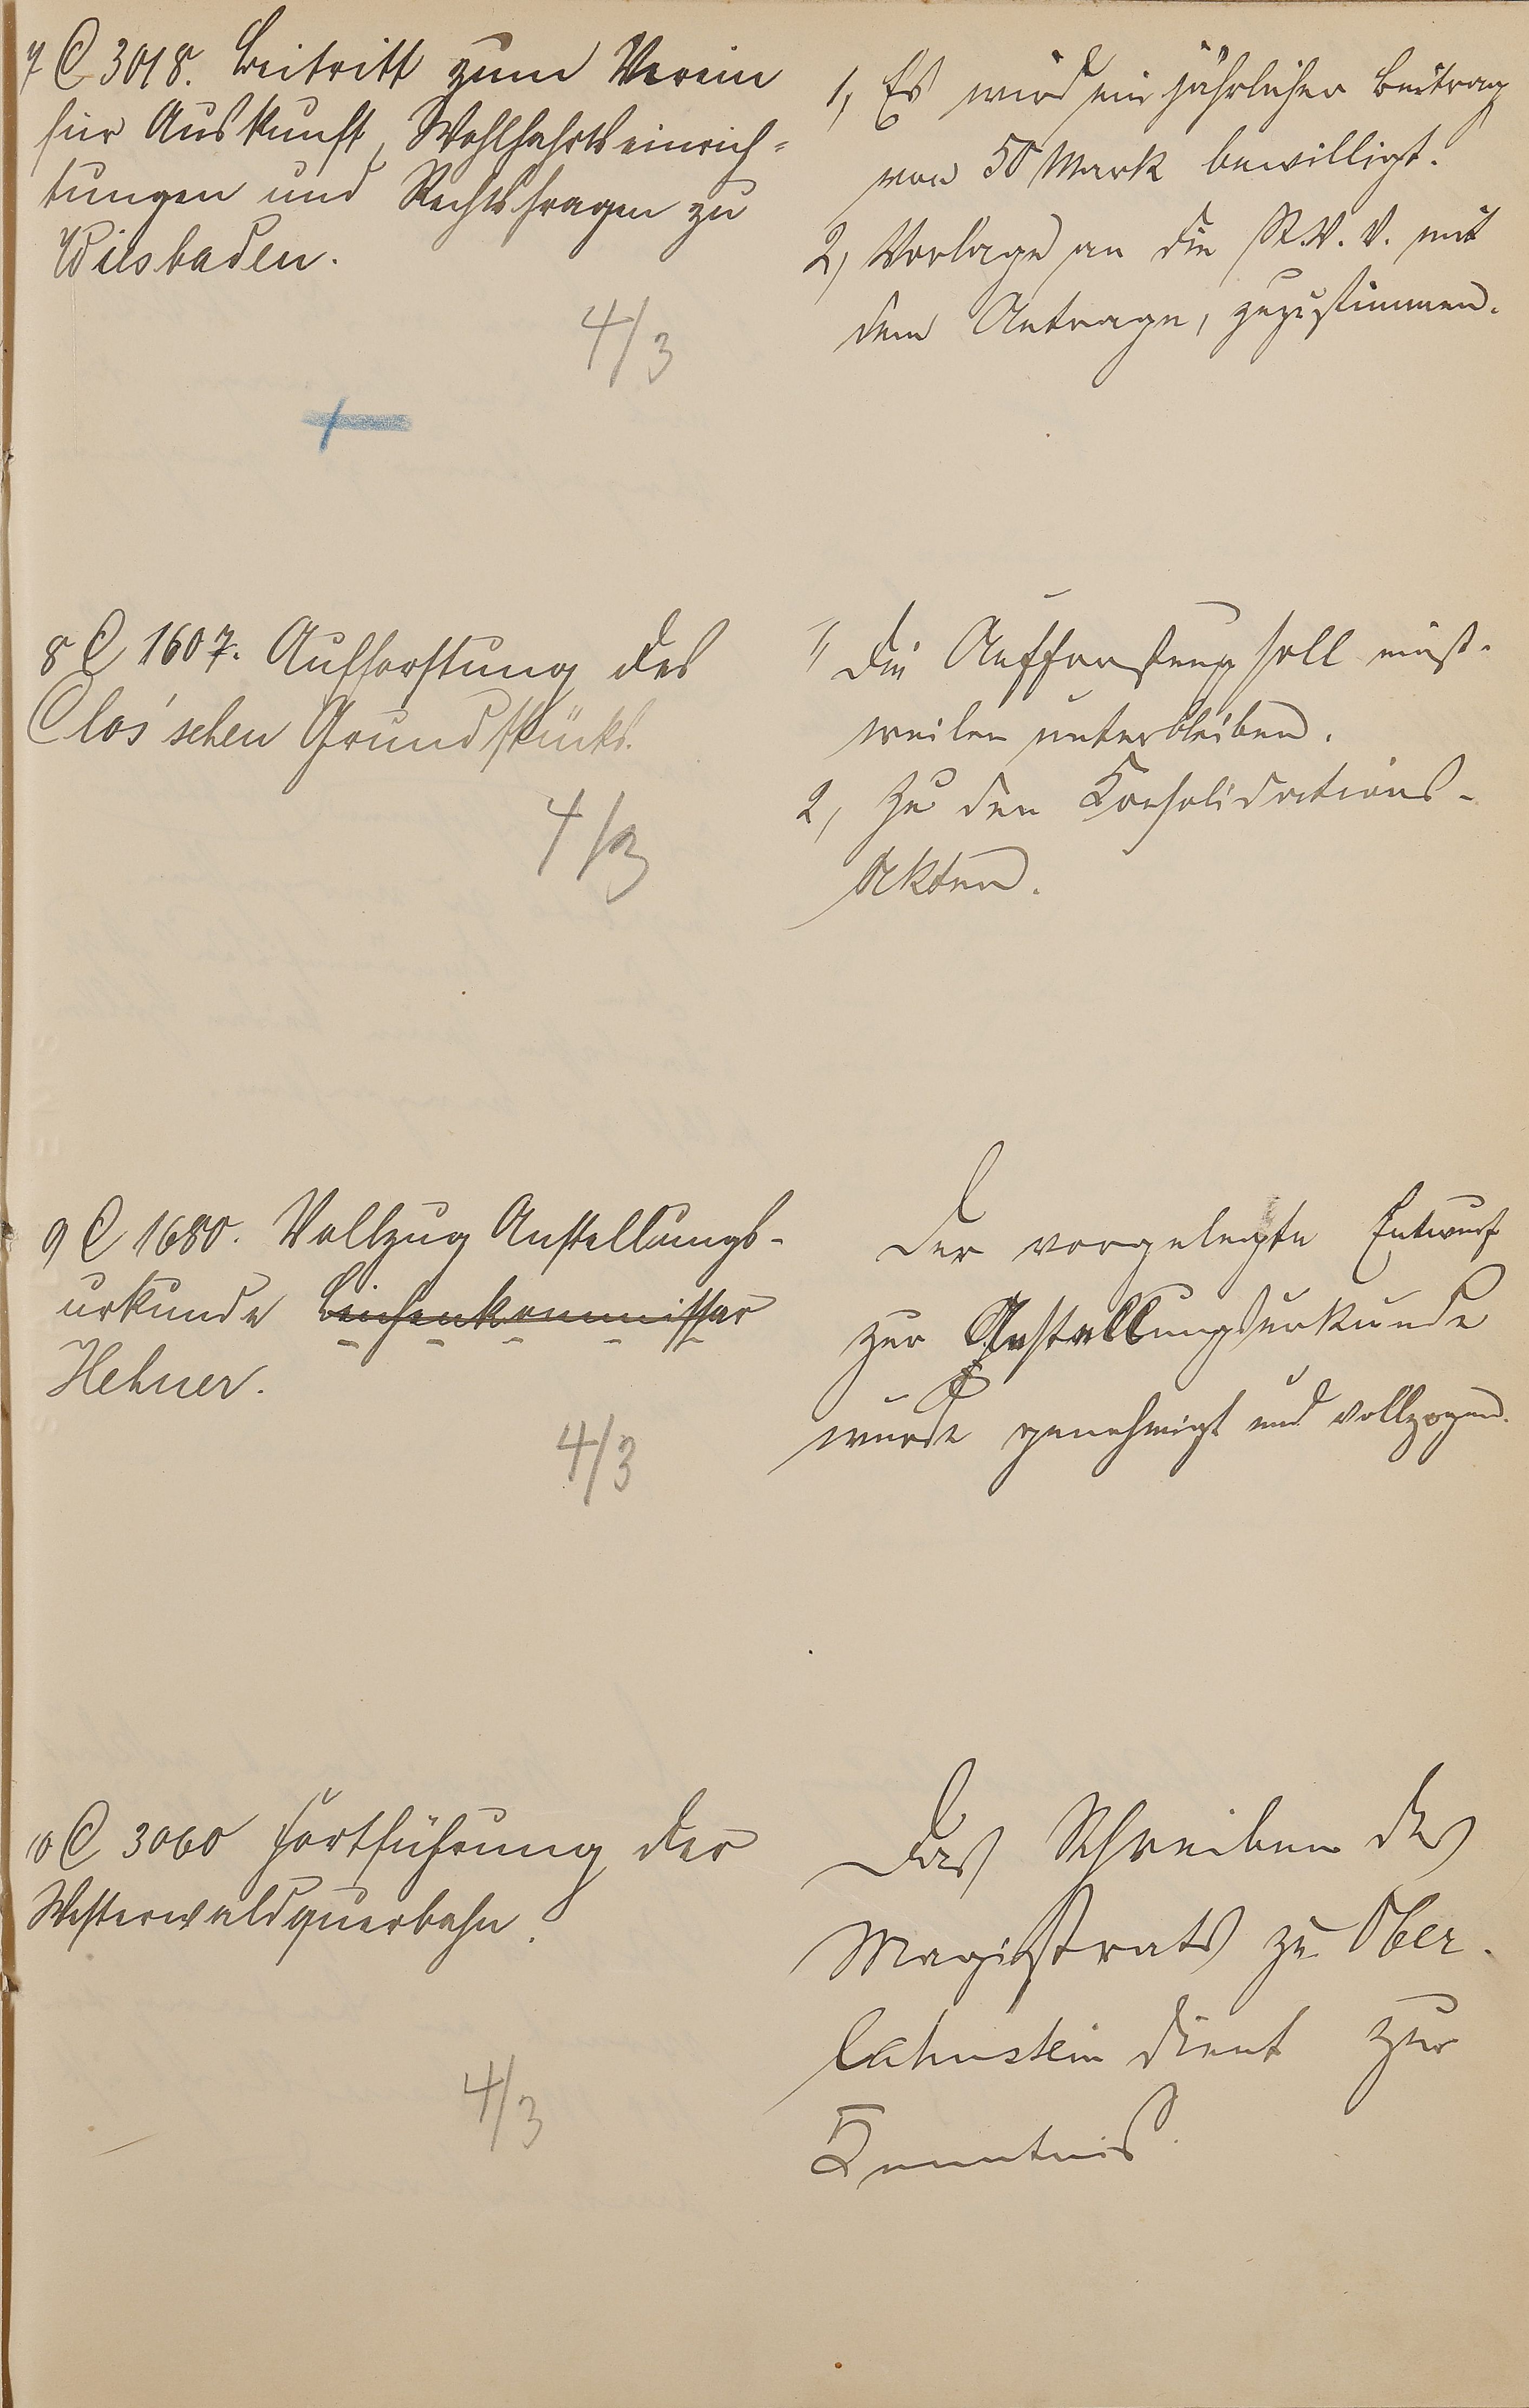 7 C 3018. Beitritt zum Verein
für Auskunft, Wohlfahrtseinrich=
tungen und Rechtsfragen zu
Wiesbaden.
4/3
1, Es wird ein jährlicher Beitrag
von 50 Mark bewilligt.
2, Vorlage an die St. V. V. mit
dem Antrage, zuzustimmen.
8 C 1607. Aufforstung des
Clos'schen Grundstücks.
4/3
1, Die Aufforstung soll einst-
weilen unterbleiben.
2, Zu den Konsolidations-
Akten.
9 C 1680. Vollzug Anstellungs-
urkunde Leichenkommissar
Hehner.
4/3
Der vorgelegte Entwurf
zur Anstellungsurkunde
wurde genehmigt und vollzogen.
10 C 3060 Fortführung der
Westerwaldquerbahn.
4/3
Das Schreiben des
Magistrats zu Ober-
lahnstein dient zur
Kenntnis.